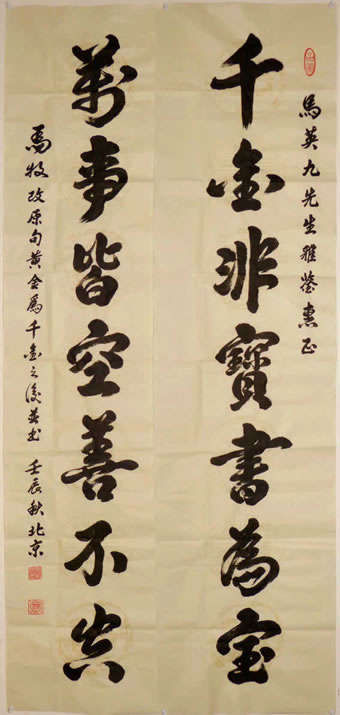 馬英九先生雅鑒惠正
千金非寶書為宝
萬事皆空善不空
馬牧改原句黄金為千金之後並书 壬辰秋北京